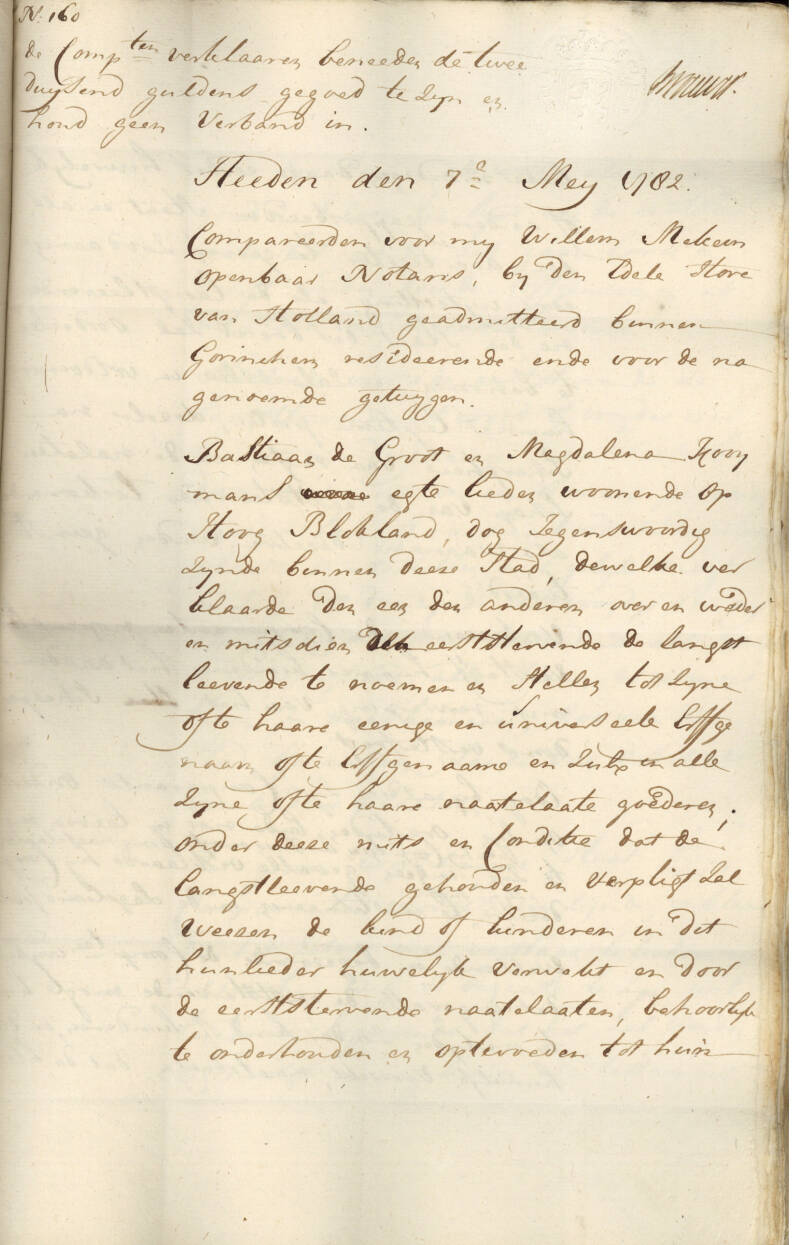 N. 160
de Comp.ten verklaaren beneeden de twee
duysend guldens gegoed te zyn en
houd geen Verband in.
Heeden den 7e Mey 1782.
Compareerden voor my Willem Mekern
openbaar Notaris, by den Edele Hove
van Holland geadmitteerd binnen
Gorinchem resideerende ende voor de na
genoemde getuygen.
Bastiaan de Groot en Magdalena Kooy
mans egte lieden woonende op
Hoog Blokland, dog Tegenswoordig
zynde binnen deese Stad, dewelke ver
klaarde den een den anderen over en weder
en mitsdien de eerststervende de langst
leevende te noemen en Stellen tot zyne
ofte haare eenige en universeele Erffge
naam ofte Erffgenaame en zulx in alle
zyne ofte haare naatelaate goederen,
onder deese mits en Conditie dat de
langstleevende gehouden en verpligt zal
weesen de kind of kinderen in dit
hunlieder huwelyk verwekt en door
de eerststervende naatelaaten, behoorlyk
te onderhouden en optevoeden tot hun